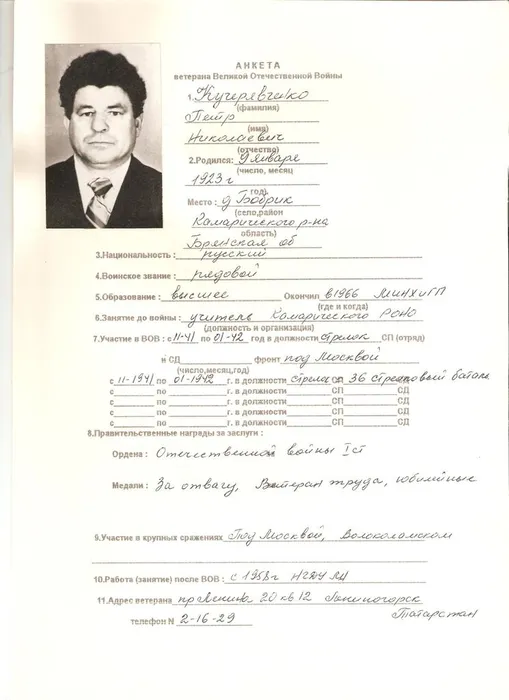 АНКЕТА
ветерана Великой Отечественной Войны
1. Кучерявченко
(фамилия)
Петр
(имя)
Николаевич
(отчество)
2.Родился: 9 января
(число, месяц
1923 г
год)
Место : д Бобрик
(село,район
Комарического р-на
область)
Брянская об
3.Национальность : русский
4.Воинское звание : рядовой
5.Образование : высшее Окончил в 1966 МИНХиГП
(где и когда)
6.Занятие до войны : учитель Комарического РОНО
(должность и организация)
7.Участие в ВОВ : с 11-41 по 01-42 год в должности стрелок СП (отряд)
и СД фронт под Москвой
(число,месяц,год)
с 11-1941 по 01-1942 г. в должности стрелок 36 стрелковый батал
с по г. в должности СП СД
с по г. в должности СП СД
с по г. в должности СП СД
с по г. в должности СП СД
8.Правительственные награды за заслуги :
Ордена : Отечественной войны I ст
Медали : За отвагу, Ветеран труда, юбилейные
9.Участие в крупных сражениях Под Москвой, Волоколамском
10.Работа (занятие) после ВОВ : с 1958 г НГДУ ЛН
11.Адрес ветерана пр Ленина 20 кв 12 Лениногорск
Татарстан
телефон N 2-16-29